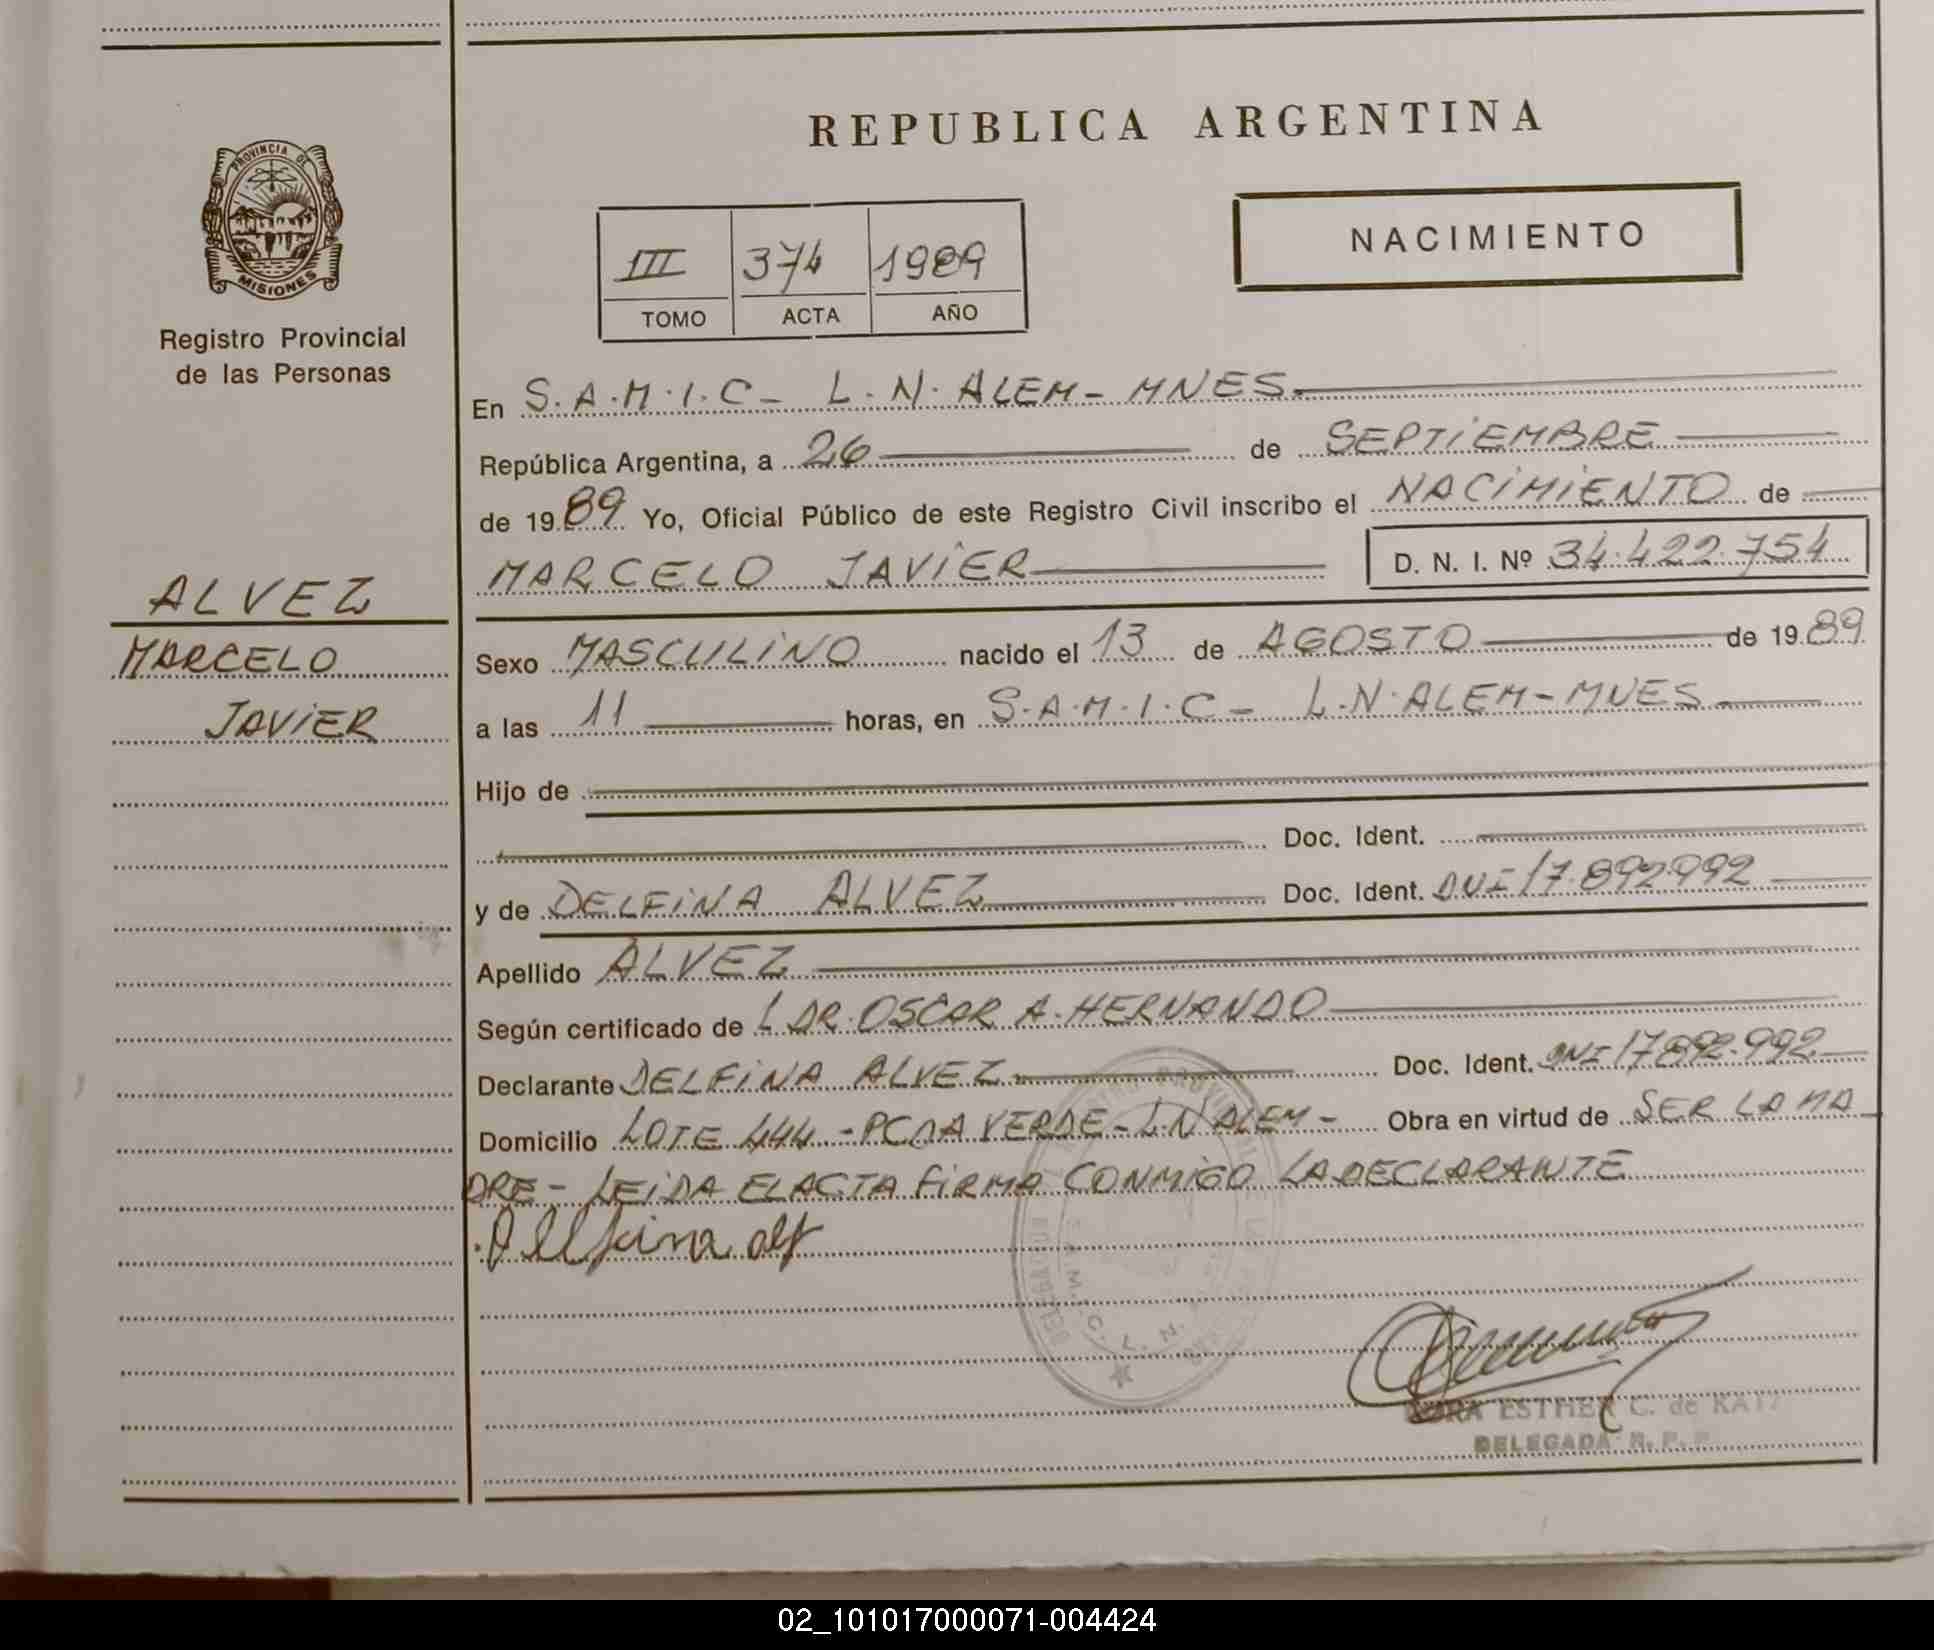 REPUBLICA ARGENTINA
PROVINCIA DE
MISIONES
Registro Provincial
de las Personas
NACIMIENTO
III 374 1989
TOMO ACTA AÑO
En S.A.M.I.C- L.N.ALEM-MNES.
República Argentina, a 26 de SEPTIEMBRE
de 1989 Yo, Oficial Público de este Registro Civil inscribo el NACIMIENTO de
MARCELO JAVIER D. N. I. Nº 34.422.754
ALVEZ
MARCELO
JAVIER
Sexo MASCULINO nacido el 13 de AGOSTO de 1989
a las 11 horas, en S.A.M.I.C- L.N.ALEM-MNES
Hijo de
Doc. Ident.
y de DELFINA ALVEZ Doc. Ident. DNI 17.892.992
Apellido ALVEZ
Según certificado de DR. OSCAR A. HERNANDO
Declarante DELFINA ALVEZ Doc. Ident. DNI 17.892.992
Domicilio LOTE 444 - PCDA VERDE - L.N ALEM - Obra en virtud de SER LA MA
DRE - LEIDA EL ACTA FIRMA CONMIGO LA DECLARANTE
Delfina alf
ESTHER C. de KATZ
DELEGADA R. P. P.
02_101017000071-004424